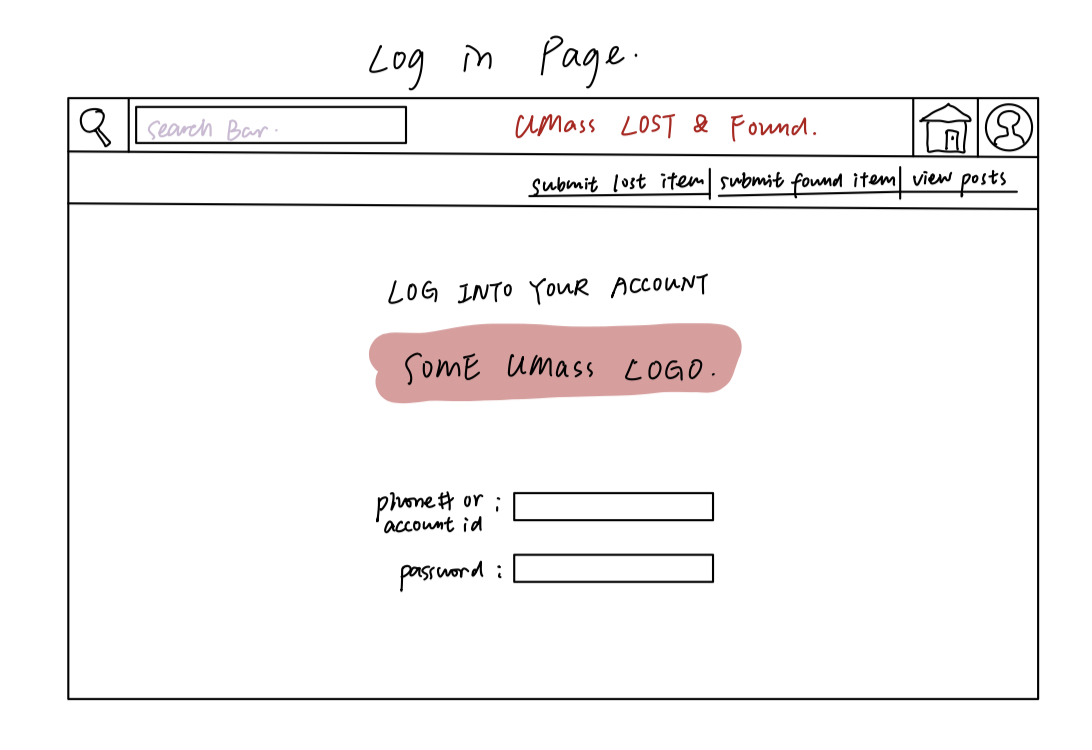 Log in Page.
Search Bar.
UMass LOST & Found.
submit lost item | submit found item | view posts
LOG INTO YOUR ACCOUNT
SOME UMass LOGO.
phone# or :
account id
password :